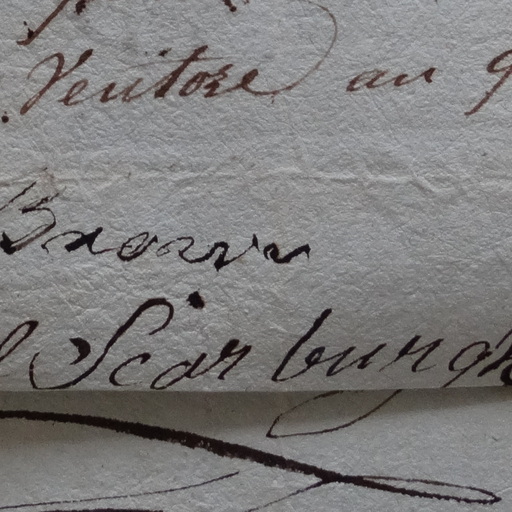 Ventose au 9
Brown
Scarburgh